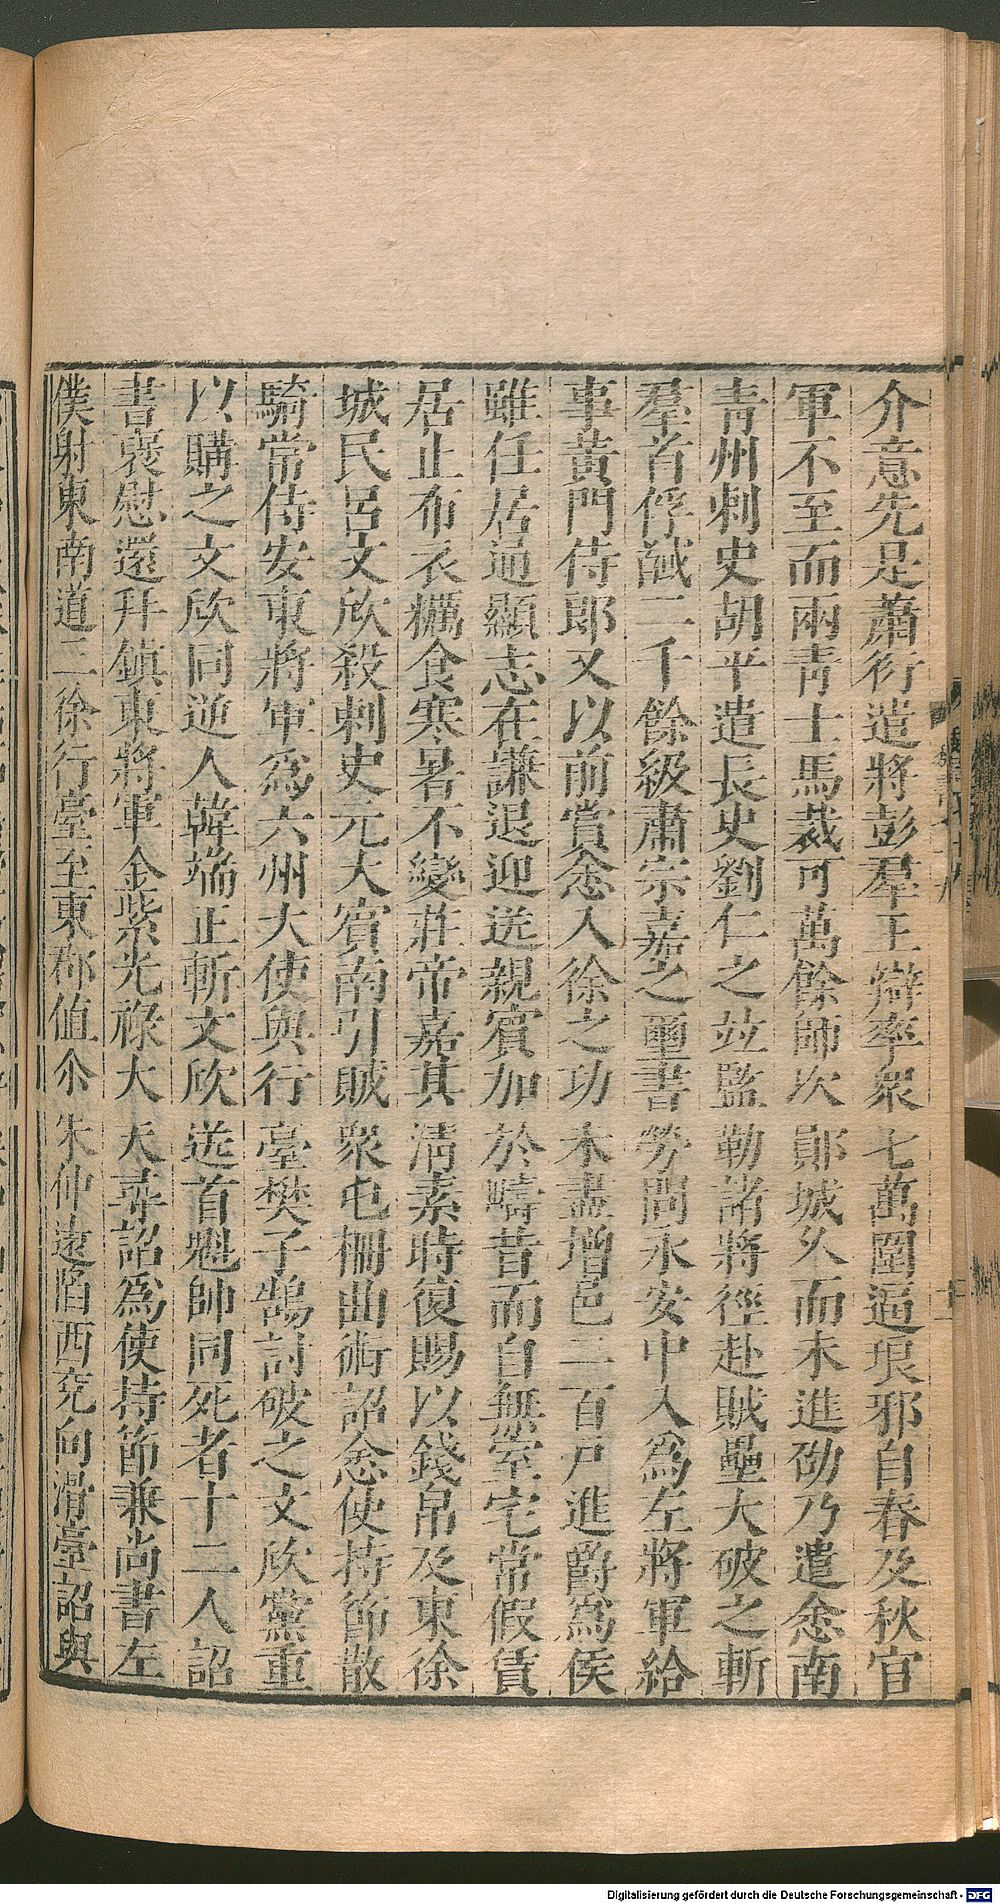 介意先是蕭衍遣將彭羣王辯率衆七萬圍逼琅邪自春及秋官
軍不至而兩青士馬裁可萬餘師次鄖城久而未進劭乃遣悆南
青州刺史胡平遣長史劉仁之並監勒諸將徑赴賊壘大破之斬
羣首俘馘二千餘級肅宗嘉之璽書勞問永安中入爲左將軍給
事黃門侍郎又以前賞悆入徐之功未盡增邑二百戶進爵爲侯
雖任居通顯志在謙退迎送親賓加於疇昔而自無室宅常假賃
居止布衣糲食寒暑不變莊帝嘉其清素時復賜以錢帛及東徐
城民呂文欣殺刺史元大賓南引賊衆屯柵曲術詔悆使持節散
騎常侍安東將軍爲六州大使與行臺樊子鵠討破之文欣黨重
以購之文欣同逆人韓端正斬文欣送首魁帥同死者十二人詔
書褒慰還拜鎮東將軍金紫光祿大夫尋詔爲使持節兼尚書左
僕射東南道三徐行臺至東郡值尒朱仲遠陷西兗向滑臺詔與
Digitalisierung gefördert durch die Deutsche Forschungsgemeinschaft - DFG